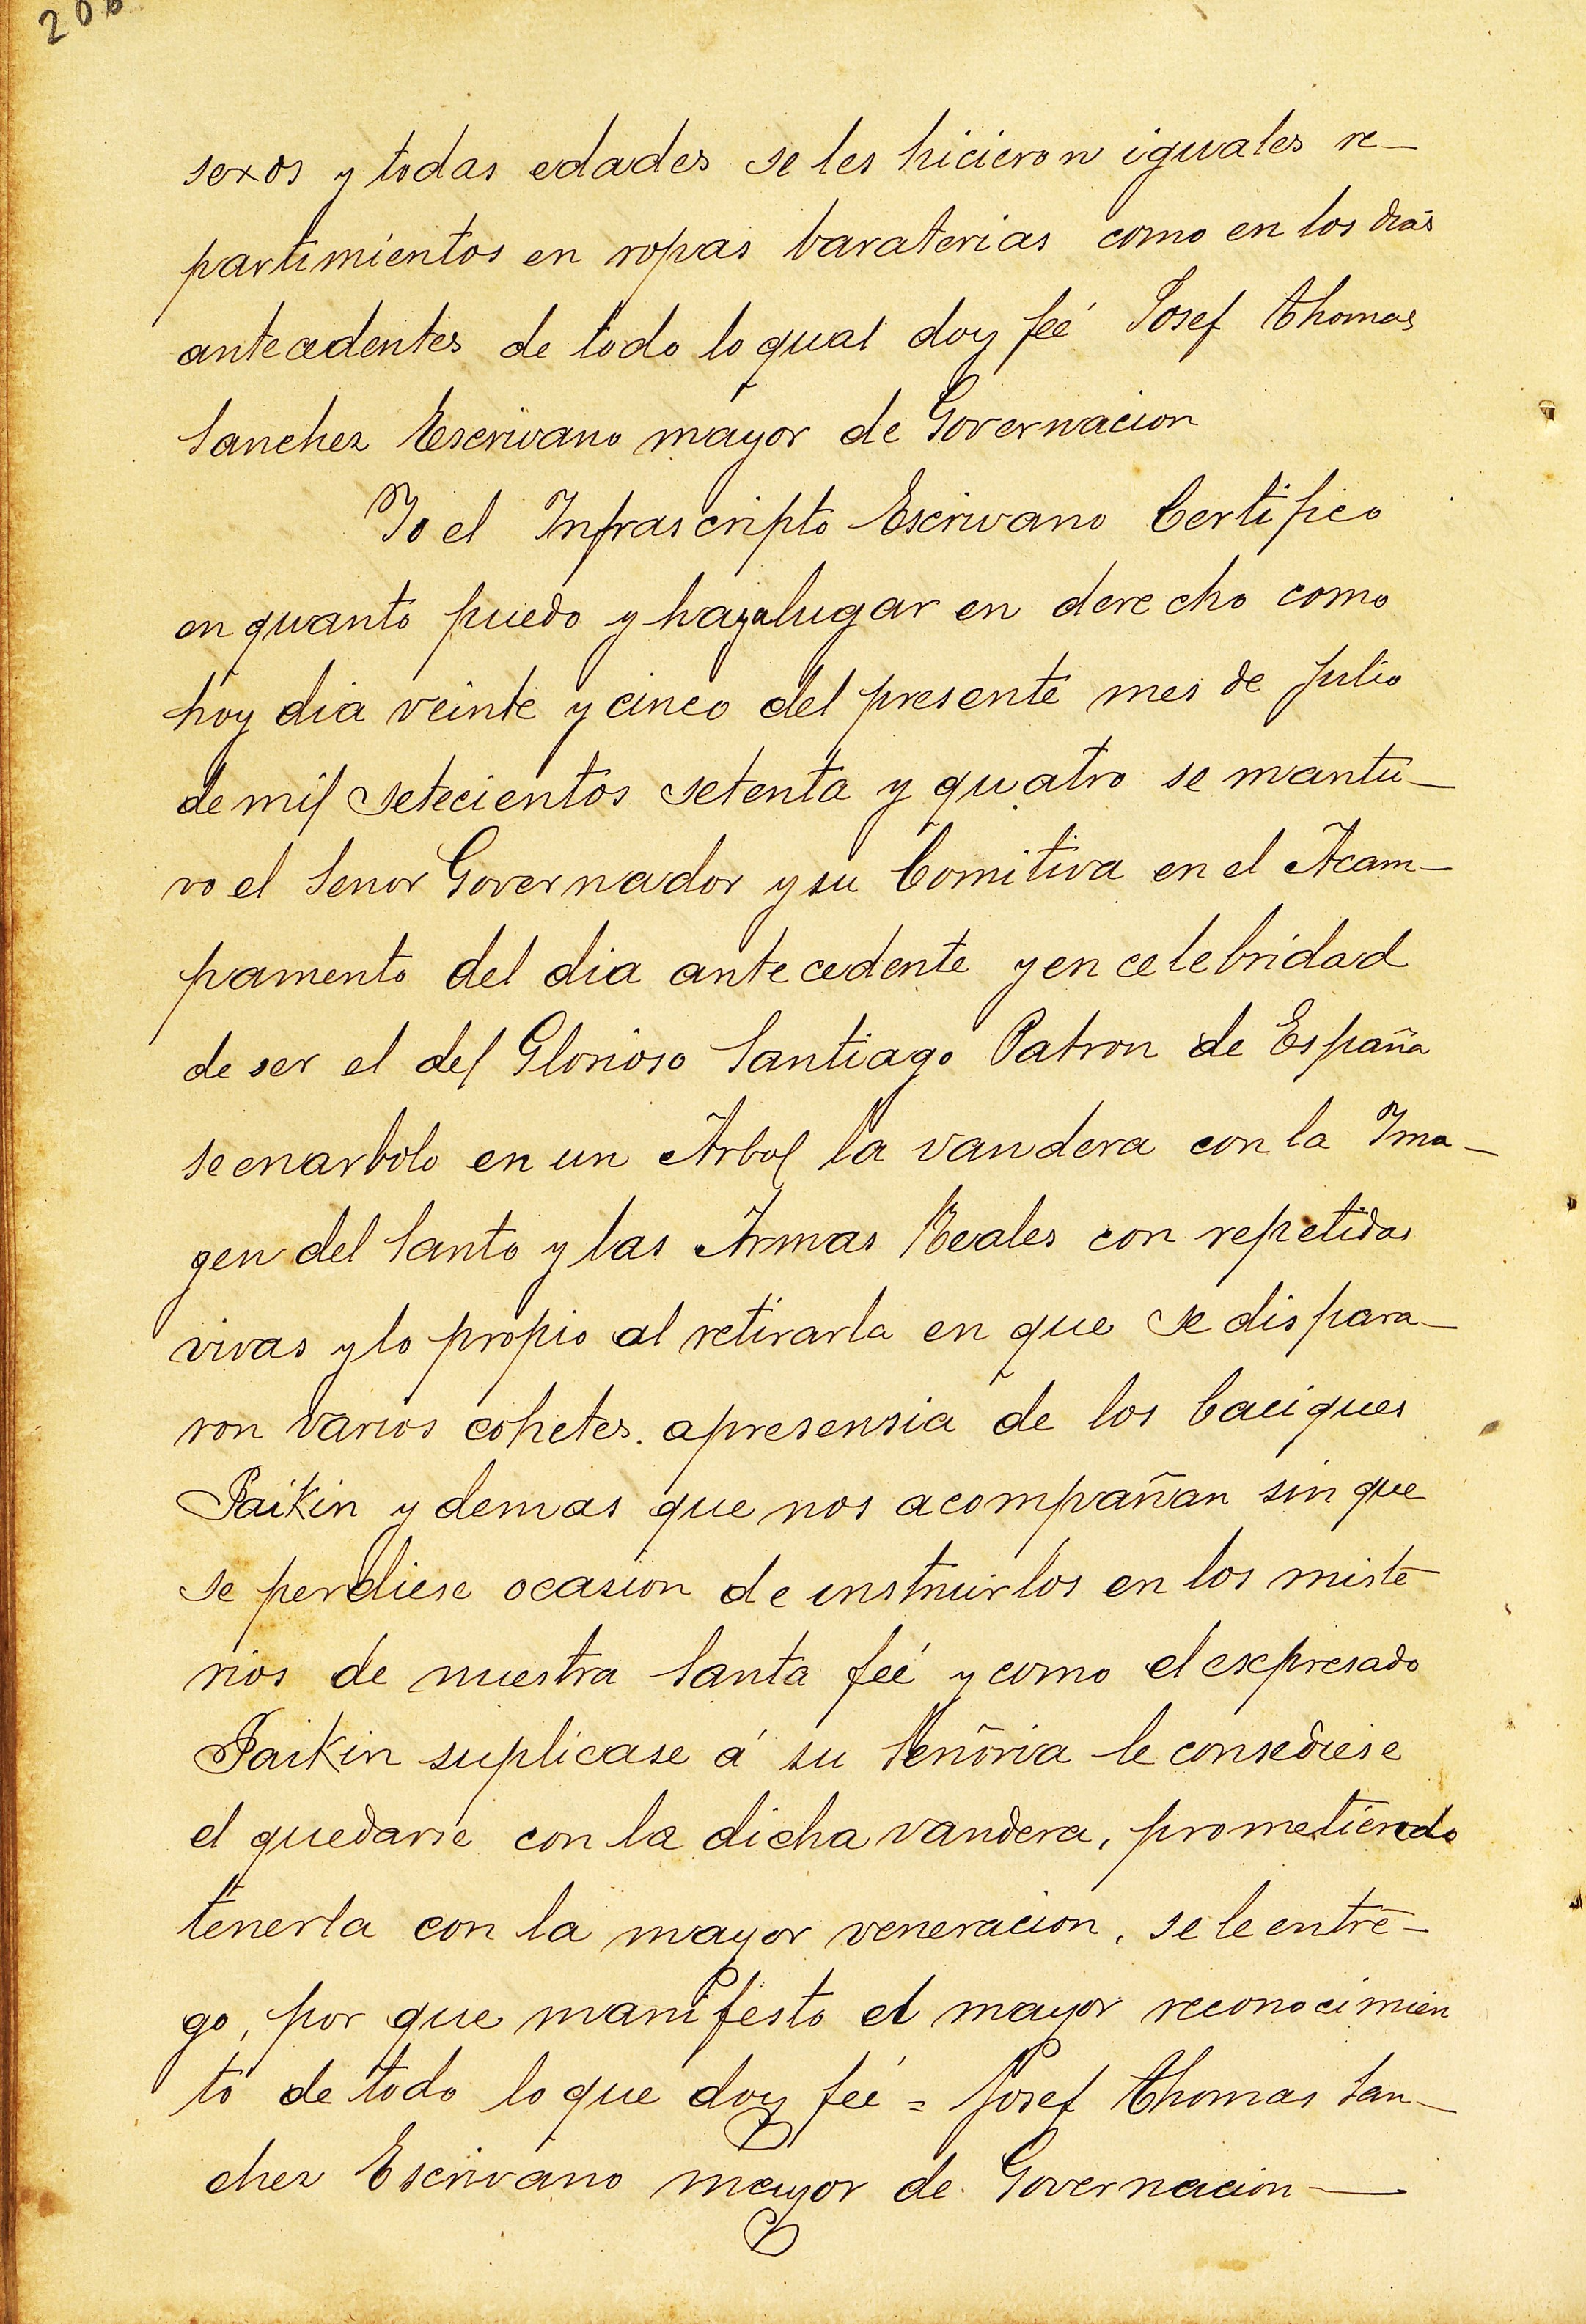 sexos y todas edades se les hicieron iguales re-
partimientos en ropas baraterias como en los dias
antecedentes de todo lo qual doy feé Josef Thomas
Sanchez Escrivano mayor de Governacion
Yo el Infrascripto Escrivano Certifico
en quanto puedo y haya lugar en derecho como
hoy dia veinte y cinco del presente mes de Julio
de mil setecientos setenta y quatro se mantu-
vo el Senor Governador y su Comitiva en el Acam-
pamento del dia antecedente y en celebridad
de ser el del Glorioso Santiago Patron de España
se enarbolo en un Arbol la vandera con la Ima-
gen del Santo y las Armas Reales con repetidas
vivas y lo propio al retirarla en que se dispara-
ron varios cohetes. apresensia de los Caciques
Paikin y demas que nos acompañan sin que
se perdiese ocasion de instruirlos en los miste
rios de nuestra Santa feé y como el expresado
Paikin suplicase á su Señoria le consediese
el quedarse con la dicha vandera, prometiendo
tenerla con la mayor veneracion, se le entre-
go, por que manifesto el mayor reconocimien
to de todo lo que doy feé = Josef Thomas San-
chez Escrivano mayor de Governacion